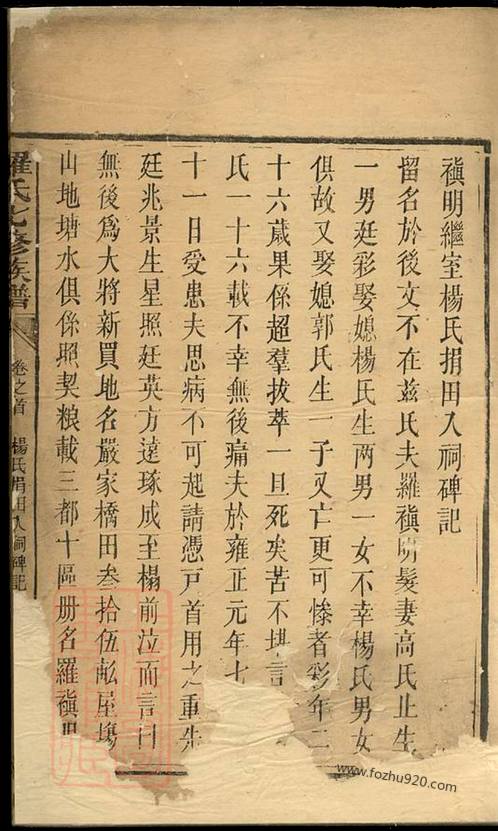 禛明繼室楊氏捐田入祠碑記
留名於後文不在兹氏夫羅禛明髮妻高氏止生
一男廷彩娶媳楊氏生两男一女不幸楊氏男女
俱故又娶媳郭氏生一子又亡更可慘者彩年二
十六歲果係超羣拔萃一旦死矣苦不堪言
氏一十六載不幸無後痛夫於雍正元年七
十一日受患夫思病不可起請憑戸首用之重先
廷兆景生星照廷英方達琢成至榻前泣而言曰
無後爲大將新買地名嚴家橋田叁拾伍畝屋塲
山地塘水俱係照契粮載三都十區册名羅禛
羅氏七修族譜
卷之首
楊氏捐田入祠碑記
www.fozhu920.com